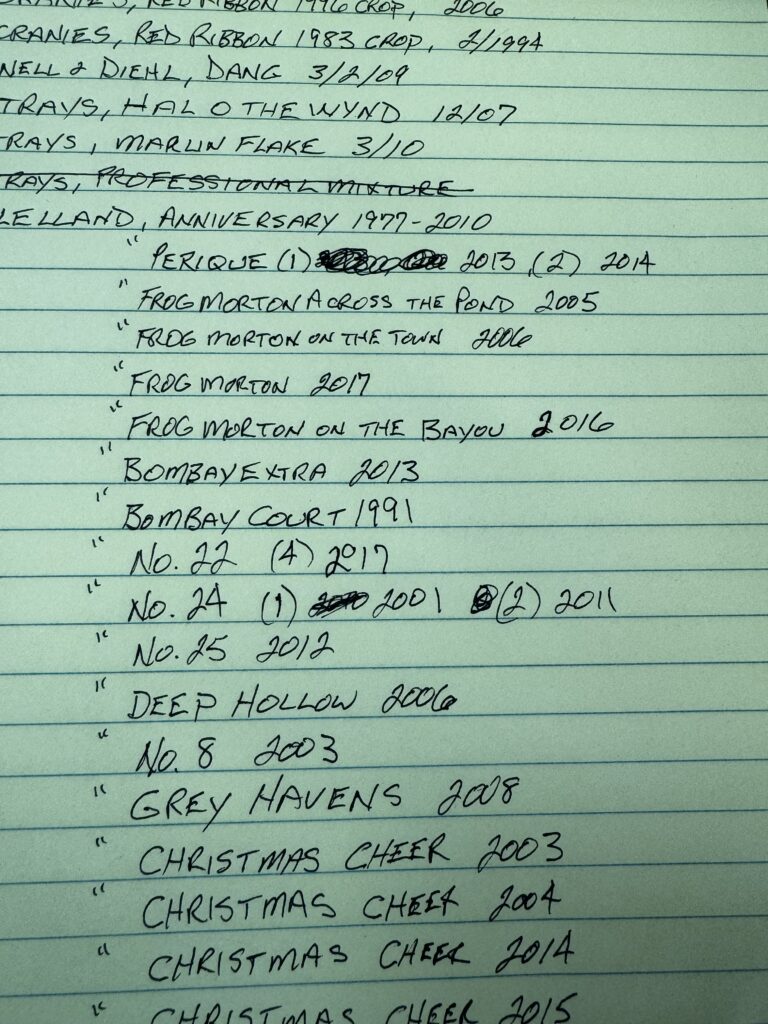 CRANIES, RED RIBBON 1996 CROP, 2006
CRANIES, RED RIBBON 1983 CROP, 2/1994
NELL & DIEHL, DANG 3/2/09
TRAYS, HAL O THE WYND 12/07
RAYS, MARLIN FLAKE 3/10
RAYS, PROFESSIONAL MIXTURE
LELLAND, ANNIVERSARY 1977-2010
" PERIQUE (1) 2013, (2) 2014
" FROG MORTON ACROSS THE POND 2005
" FROG MORTON ON THE TOWN 2006
" FROG MORTON 2017
" FROG MORTON ON THE BAYOU 2016
" BOMBAY EXTRA 2013
" BOMBAY COURT 1991
" No. 22 (4) 2017
" No. 24 (1) 2001 (2) 2011
" No. 25 2012
" DEEP HOLLOW 2006
" No. 8 2003
" GREY HAVENS 2008
" CHRISTMAS CHEER 2003
" CHRISTMAS CHEER 2004
" CHRISTMAS CHEER 2014
" CHRISTMAS CHEER 2015